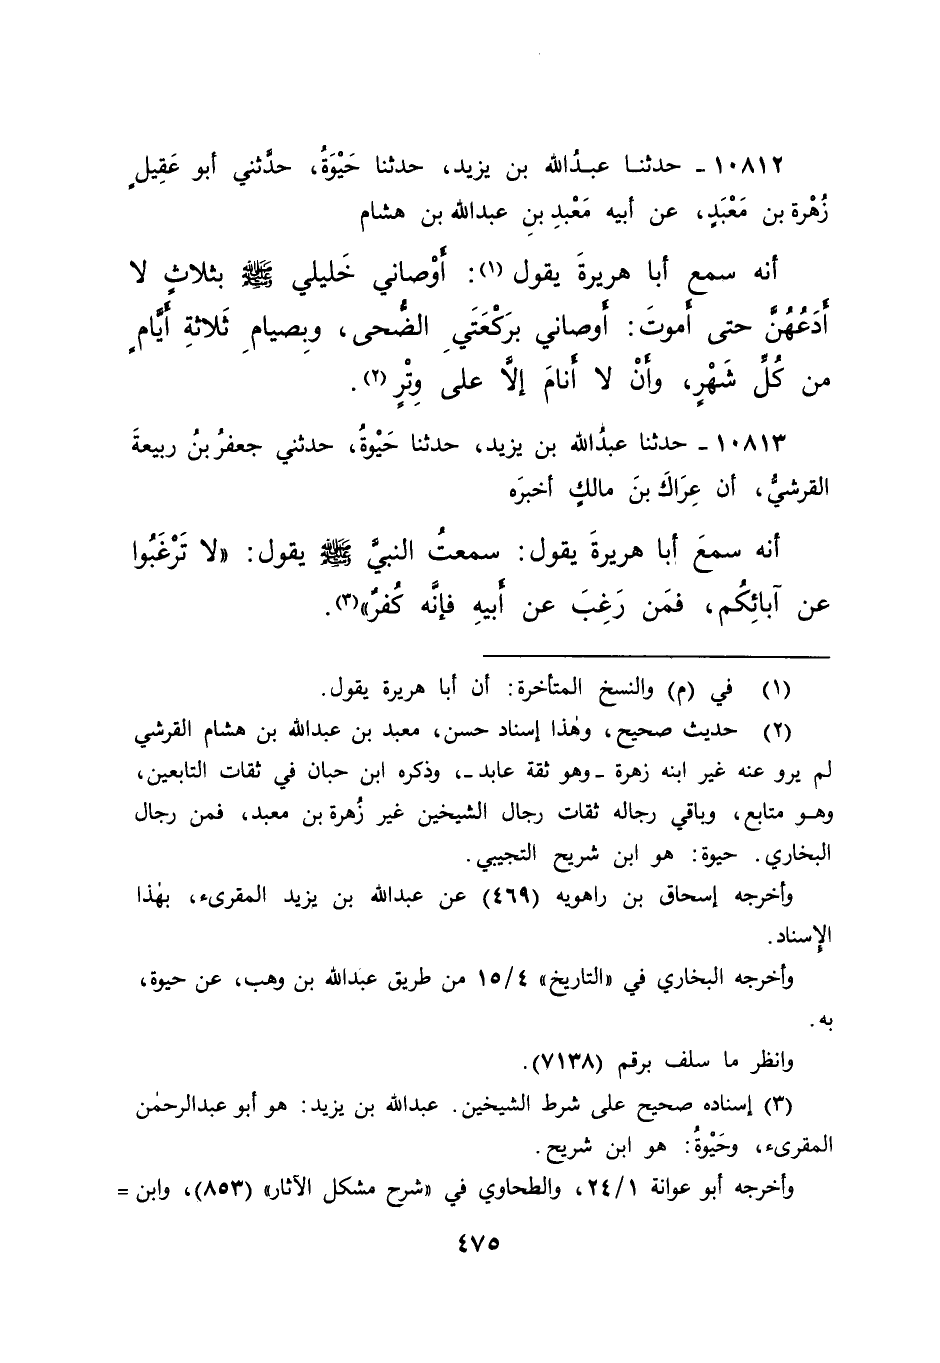 ١٠٨١٢ ـ حدثنـا عبـدُالله بن يزيد، حدثنا حَيْوَةُ، حدَّثني أبو عَقِيلٍ
زُهْرة بن مَعْبَدٍ، عن أبيه مَعْبدِ بنِ عبدالله بن هشام
أنه سمع أبا هريرةَ يقول (١): أَوْصاني خَليلي ﷺ بثلاثٍ لا
أَدَعُهُنَّ حتى أَموتَ: أَوصاني برَكْعَتَي الضُّحى، وبِصيامِ ثَلاثةِ أَيَّامٍ
من كُلِّ شَهْرٍ، وأَنْ لا أَنامَ إلَّا على وِتْرٍ (٢).
١٠٨١٣ ـ حدثنا عبدُالله بن يزيد، حدثنا حَيْوةُ، حدثني جعفرُ بنُ ربيعةَ
القرشيُّ، أن عِرَاكَ بنَ مالكٍ أخبرَه
أنه سمعَ أبا هريرةَ يقول: سمعتُ النبيَّ ﷺ يقول: «لا تَرْغَبُوا
عن آبائِكُم، فمَن رَغِبَ عن أَبيهِ فإنَّه كُفرٌ»(٣).
(١) في (م) والنسخ المتأخرة: أن أبا هريرة يقول.
(٢) حديث صحيح، وهٰذا إسناد حسن، معبد بن عبدالله بن هشام القرشي
لم يرو عنه غير ابنه زهرة ـ وهو ثقة عابد ـ، وذكره ابن حبان في ثقات التابعين،
وهـو متابع، وباقي رجاله ثقات رجال الشيخين غير زُهرة بن معبد، فمن رجال
البخاري. حيوة: هو ابن شريح التجيبي.
وأخرجه إسحاق بن راهويه (٤٦٩) عن عبدالله بن يزيد المقرىء، بهٰذا
الإسناد.
وأخرجه البخاري في «التاريخ» ١٥/٤ من طريق عبدالله بن وهب، عن حيوة،
به.
وانظر ما سلف برقم (٧١٣٨).
(٣) إسناده صحيح على شرط الشيخين. عبدالله بن يزيد: هو أبو عبدالرحمٰن
المقرىء، وحَيْوةُ: هو ابن شريح.
وأخرجه أبو عوانة ٢٤/١، والطحاوي في «شرح مشكل الآثار» (٨٥٣)، وابن =
٤٧٥